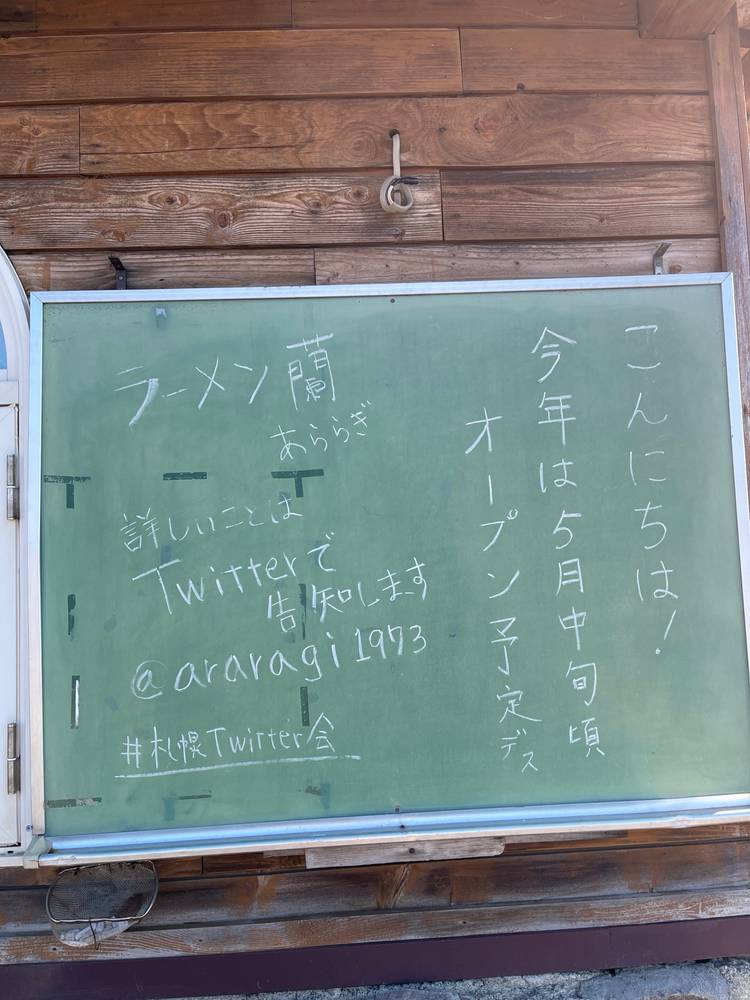 こんにちは!
今年は5月中旬頃
オープン予定デス
ラーメン蘭
あららぎ
詳しいことは
Twitterで
告知します
@araragi1973
#札幌Twitter会